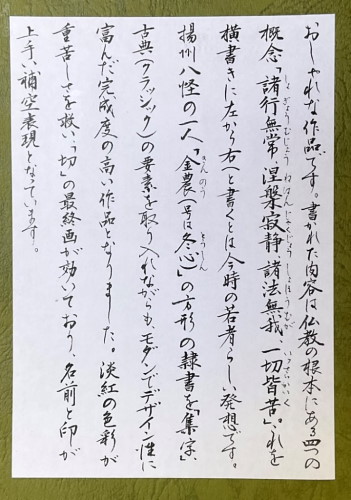 おしゃれな作品です。書かれた内容は仏教の根本にある四つの
概念「諸行無常、涅槃寂静、諸法無我、一切皆苦」。これを
しょぎょうむじょう ねはんじゃくじょう しょほうむが いっさいかいく
横書きに左から右へと書くとは今時の若者らしい発想です。
揚州八怪の一人、「金農(号は冬心)」の方形の隷書を「集字」、
きんのう とうしん
古典(クラシック)の要素を取り入れながらも、モダンでデザイン性に
富んだ完成度の高い作品となりました。淡紅の色彩が
重苦しさを救い、「切」の最終画が効いており、名前と印が
上手い補空表現となっています。